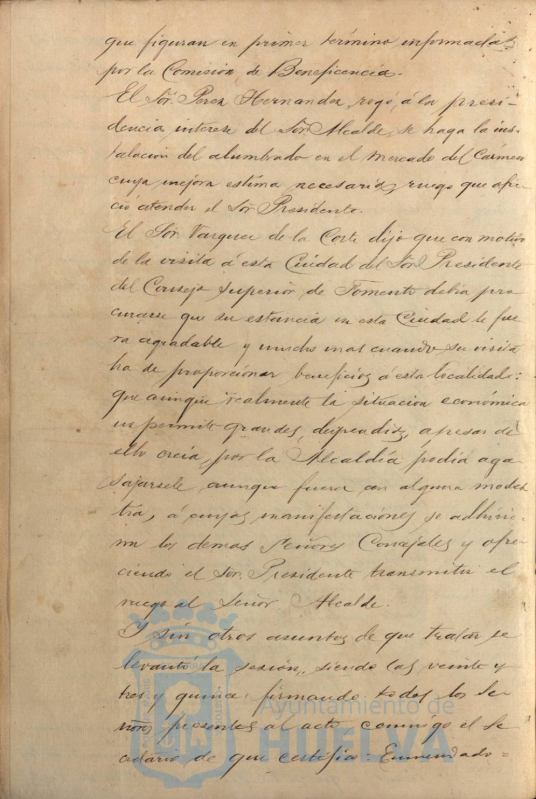 que figuran en primer término informadas
por la Comisión de Beneficencia.
El Sor. Perez Hernandez, rogó á la presi-
dencia interese del Sor. Alcalde, se haga la ins-
talacion del alumbrado en el mercado del Carmen
cuya mejora estima necesaria, ruego que ofre-
ció atender el Sor. Presidente.
El Sor. Vazquez de la Corte dijo que con motivo
de la visita á esta Ciudad del Sor. Presidente
del Consejo Superior de Fomento debia pro
curarse que su estancia en esta Ciudad le fue
ra agradable y mucho mas cuando su visita
ha de proporcionar beneficios á esta localidad:
que aunque realmente la situacion económica
no permite grandes dispendios, apesar de
ello creia, por la Alcaldía podia aga
sajarsele aunque fuera con alguna modes
tia, á cuyas manifestaciones se adhirie-
ron los demas Señores Concejales y ofre-
ciendo el Sor. Presidente transmitir el
ruego al Señor Alcalde.
Y sin otros asuntos de que tratar se
levantó la sesión, siendo las veinte y
tres y quince, firmando todos los Se
ñores presentes al acto conmigo el Se
cretario de que certifico: Enmendado=
Ayuntamiento de
HUELVA